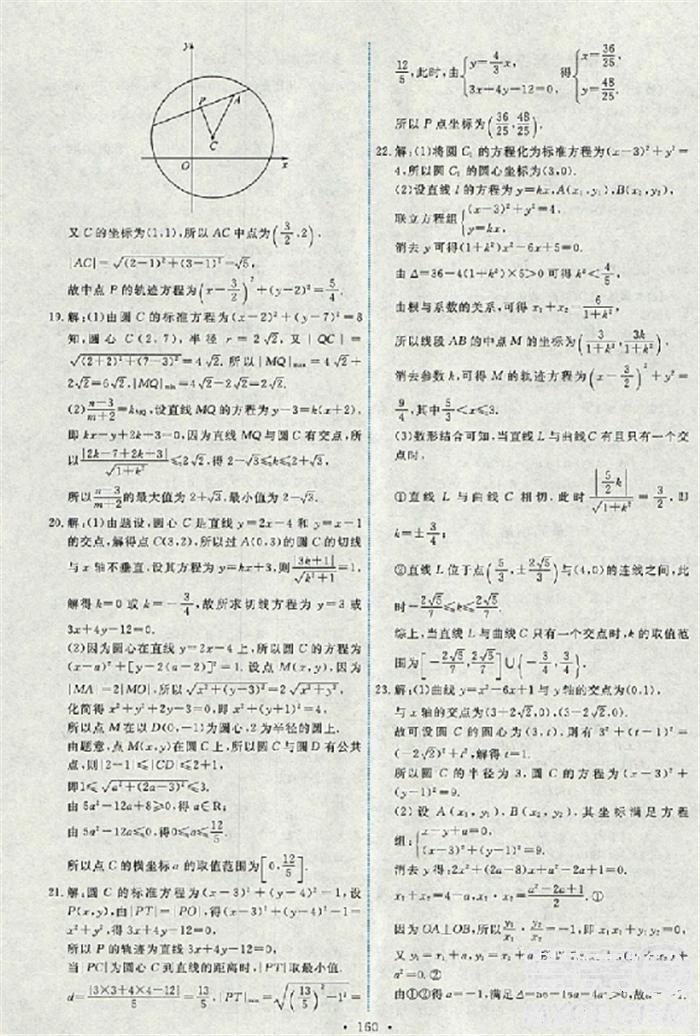 y
P
A
C
O
x
又C的坐标为(1,1),所以AC中点为(3/2,2),
|AC|=√((2-1)²+(3-1)²)=√5,
故中点P的轨迹方程为(x-3/2)²+(y-2)²=5/4.
19.解:(1)由圆C的标准方程为(x-2)²+(y-7)²=8
知,圆心C(2,7),半径r=2√2,又|QC|=
√((2+2)²+(7-3)²)=4√2.所以|MQ|max=4√2+
2√2=6√2,|MQ|min=4√2-2√2=2√2.
(2)(n-3)/(m+2)=kMQ,设直线MQ的方程为y-3=k(x+2),
即kx-y+2k+3=0,因为直线MQ与圆C有交点,所
以|2k-7+2k+3|/√(1+k²)≤2√2,得2-√3≤k≤2+√3,
所以(n-3)/(m+2)的最大值为2+√3,最小值为2-√3.
20.解:(1)由题设,圆心C是直线y=2x-4和y=x-1
的交点,解得点C(3,2),所以过A(0,3)的圆C的切线
与x轴不垂直.设其方程为y=kx+3,则|3k+1|/√(k²+1)=1,
解得k=0或k=-3/4,故所求切线方程为y=3或
3x+4y-12=0.
(2)因为圆心在直线y=2x-4上,所以圆C的方程为
(x-a)²+[y-2(a-2)]²=1.设点M(x,y),因为
|MA|=2|MO|,所以√(x²+(y-3)²)=2√(x²+y²),
化简得x²+y²+2y-3=0,即x²+(y+1)²=4,
所以点M在以D(0,-1)为圆心,2为半径的圆上.
由题意,点M(x,y)在圆C上,所以圆C与圆D有公共
点,则|2-1|≤|CD|≤2+1,
即1≤√(a²+(2a-3)²)≤3.
由5a²-12a+8≥0,得a∈R;
由5a²-12a≤0,得0≤a≤12/5.
所以点C的横坐标a的取值范围为[0,12/5].
21.解:圆C的标准方程为(x-3)²+(y-4)²=1,设
P(x,y),由|PT|=|PO|,得(x-3)²+(y-4)²-1=
x²+y²,得3x+4y=12,
所以P的轨迹为直线3x+4y-12=0,
当|PC|为圆心C到直线的距离时,|PT|取最小值.
d=|3×3+4×4-12|/5=13/5,|PT|min=√((13/5)²-1²)=
12/5,此时,由{y=4/3x, 3x+4y-12=0,得{x=36/25, y=48/25.
所以P点坐标为(36/25,48/25).
22.解:(1)将圆C₁的方程化为标准方程为(x-3)²+y²=
4,所以圆C₁的圆心坐标为(3,0).
(2)设直线l的方程为y=kx,A(x₁,y₁),B(x₂,y₂),
联立方程组{(x-3)²+y²=4, y=kx,
消去y可得(1+k²)x²-6x+5=0.
由Δ=36-4(1+k²)×5>0可得k²<4/5,
由根与系数的关系,可得x₁+x₂=6/(1+k²),
所以线段AB的中点M的坐标为(3/(1+k²),3k/(1+k²)).
消去参数k,可得M的轨迹方程为(x-3/2)²+y²=
9/4,其中5/3<x≤3.
(3)数形结合可知,当直线L与曲线C有且只有一个交
点时,
①直线L与曲线C相切.此时|5/2k|/√(1+k²)=3/2,即
k=±3/4;
②直线L位于点(5/3,±2√5/3)与(4,0)的连线之间,此
时-2√5/7≤k≤2√5/7.
综上,当直线L与曲线C只有一个交点时,k的取值范
围为[-2√5/7,2√5/7]∪{-3/4,3/4}.
23.解:(1)曲线y=x²-6x+1与y轴的交点为(0,1),
与x轴的交点为(3+2√2,0),(3-2√2,0).
故可设圆C的圆心为(3,t),则有3²+(t-1)²=
(-2√2)²+t²,解得t=1.
所以圆C的半径为3,圆C的方程为(x-3)²+
(y-1)²=9.
(2)设A(x₁,y₁),B(x₂,y₂),其坐标满足方程
组:{x-y+a=0, (x-3)²+(y-1)²=9.
消去y得:2x²+(2a-8)x+a²-2a+1=0.
x₁+x₂=4-a,x₁·x₂=(a²-2a+1)/2.①
因为OA⊥OB,所以y₁/x₁·y₂/x₂=-1,即x₁x₂+y₁y₂=0,
又y₁=x₁+a,y₂=x₂+a
a²=0.②
由①②得a=-1,满足Δ=56-16a-4a²>0,故a
160